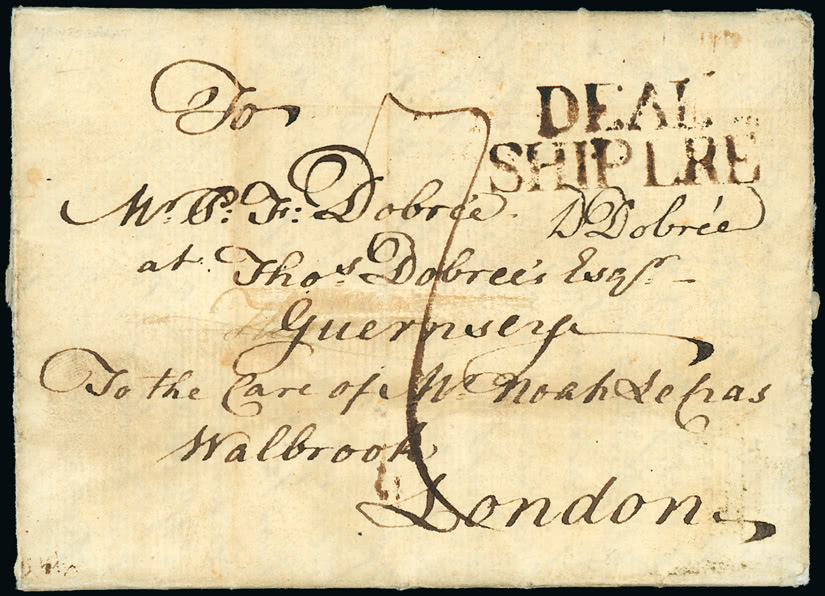 DEAL
SHIP LRE
To
Mr. P. F: Dobrée. D Dobrée
at Thos. Dobree's Esqr.
Guernsey
To the Care of Mr. Noah Le Cras
Walbrook
London
7